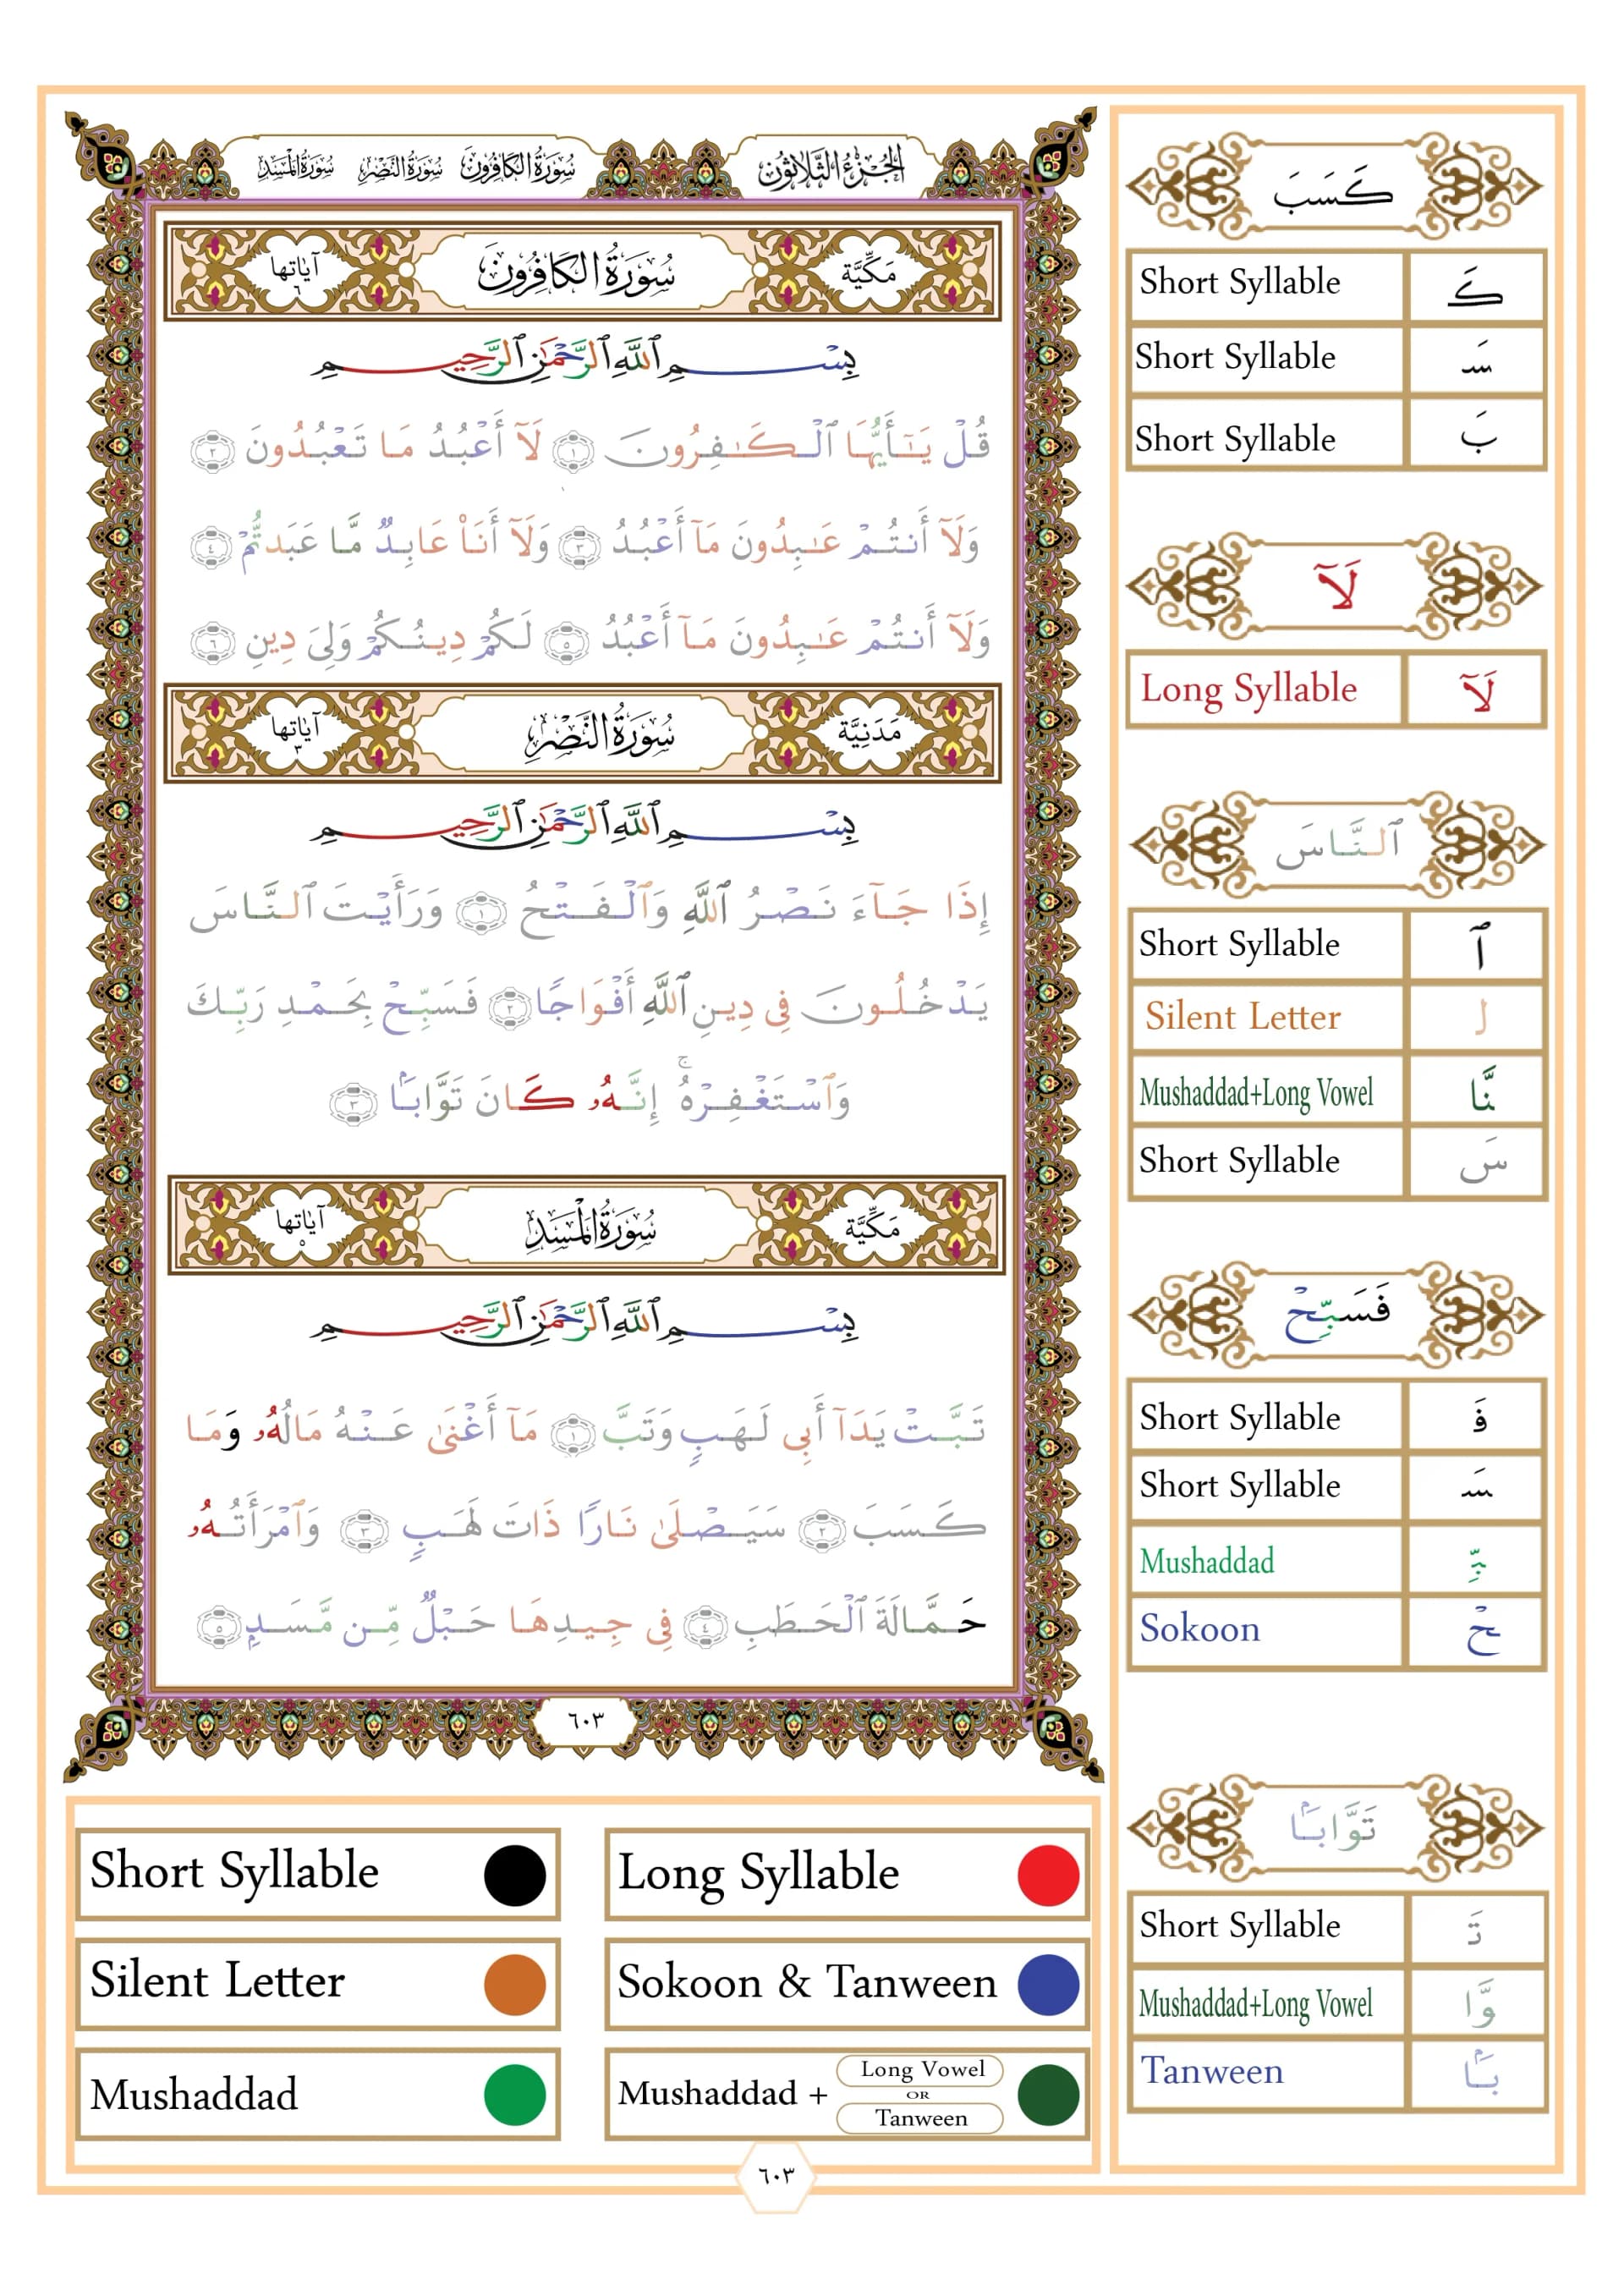 الجزء الثلاثون
سورة الكافرون سورة النصر سورة المسد
مَكِّيَّة سُورَةُ الكَافِرُونَ آيَاتها ٦
بِسْمِ ٱللَّهِ ٱلرَّحْمَٰنِ ٱلرَّحِيمِ
قُلْ يَـٰٓأَيُّهَا ٱلْكَـٰفِرُونَ ١ لَآ أَعْبُدُ مَا تَعْبُدُونَ ٢
وَلَآ أَنتُمْ عَـٰبِدُونَ مَآ أَعْبُدُ ٣ وَلَآ أَنَا۠ عَابِدٌ مَّا عَبَدتُّمْ ٤
وَلَآ أَنتُمْ عَـٰبِدُونَ مَآ أَعْبُدُ ٥ لَكُمْ دِينُكُمْ وَلِىَ دِينِ ٦
مَدَنِيَّة سُورَةُ النَّصْرِ آيَاتها ٣
بِسْمِ ٱللَّهِ ٱلرَّحْمَٰنِ ٱلرَّحِيمِ
إِذَا جَآءَ نَصْرُ ٱللَّهِ وَٱلْفَتْحُ ١ وَرَأَيْتَ ٱلنَّاسَ
يَدْخُلُونَ فِى دِينِ ٱللَّهِ أَفْوَاجًا ٢ فَسَبِّحْ بِحَمْدِ رَبِّكَ
وَٱسْتَغْفِرْهُ ۚ إِنَّهُۥ كَانَ تَوَّابًۢا ٣
مَكِّيَّة سُورَةُ المَسَدِ آيَاتها ٥
بِسْمِ ٱللَّهِ ٱلرَّحْمَٰنِ ٱلرَّحِيمِ
تَبَّتْ يَدَآ أَبِى لَهَبٍ وَتَبَّ ١ مَآ أَغْنَىٰ عَنْهُ مَالُهُۥ وَمَا
كَسَبَ ٢ سَيَصْلَىٰ نَارًا ذَاتَ لَهَبٍ ٣ وَٱمْرَأَتُهُۥ
حَمَّالَةَ ٱلْحَطَبِ ٤ فِى جِيدِهَا حَبْلٌ مِّن مَّسَدٍۭ ٥
٦٠٣
كَسَبَ
Short Syllable كَـ
Short Syllable سَـ
Short Syllable بَ
لَآ
Long Syllable لَآ
ٱلنَّاسَ
Short Syllable ٱ
Silent Letter لـ
Mushaddad+Long Vowel نَّا
Short Syllable سَ
فَسَبِّحْ
Short Syllable فَـ
Short Syllable سَـ
Mushaddad بِّـ
Sokoon حْ
تَوَّابًۢا
Short Syllable تَـ
Mushaddad+Long Vowel وَّا
Tanween بًۢا
Short Syllable
Long Syllable
Silent Letter
Sokoon & Tanween
Mushaddad
Mushaddad + Long Vowel OR Tanween
٦٠٣